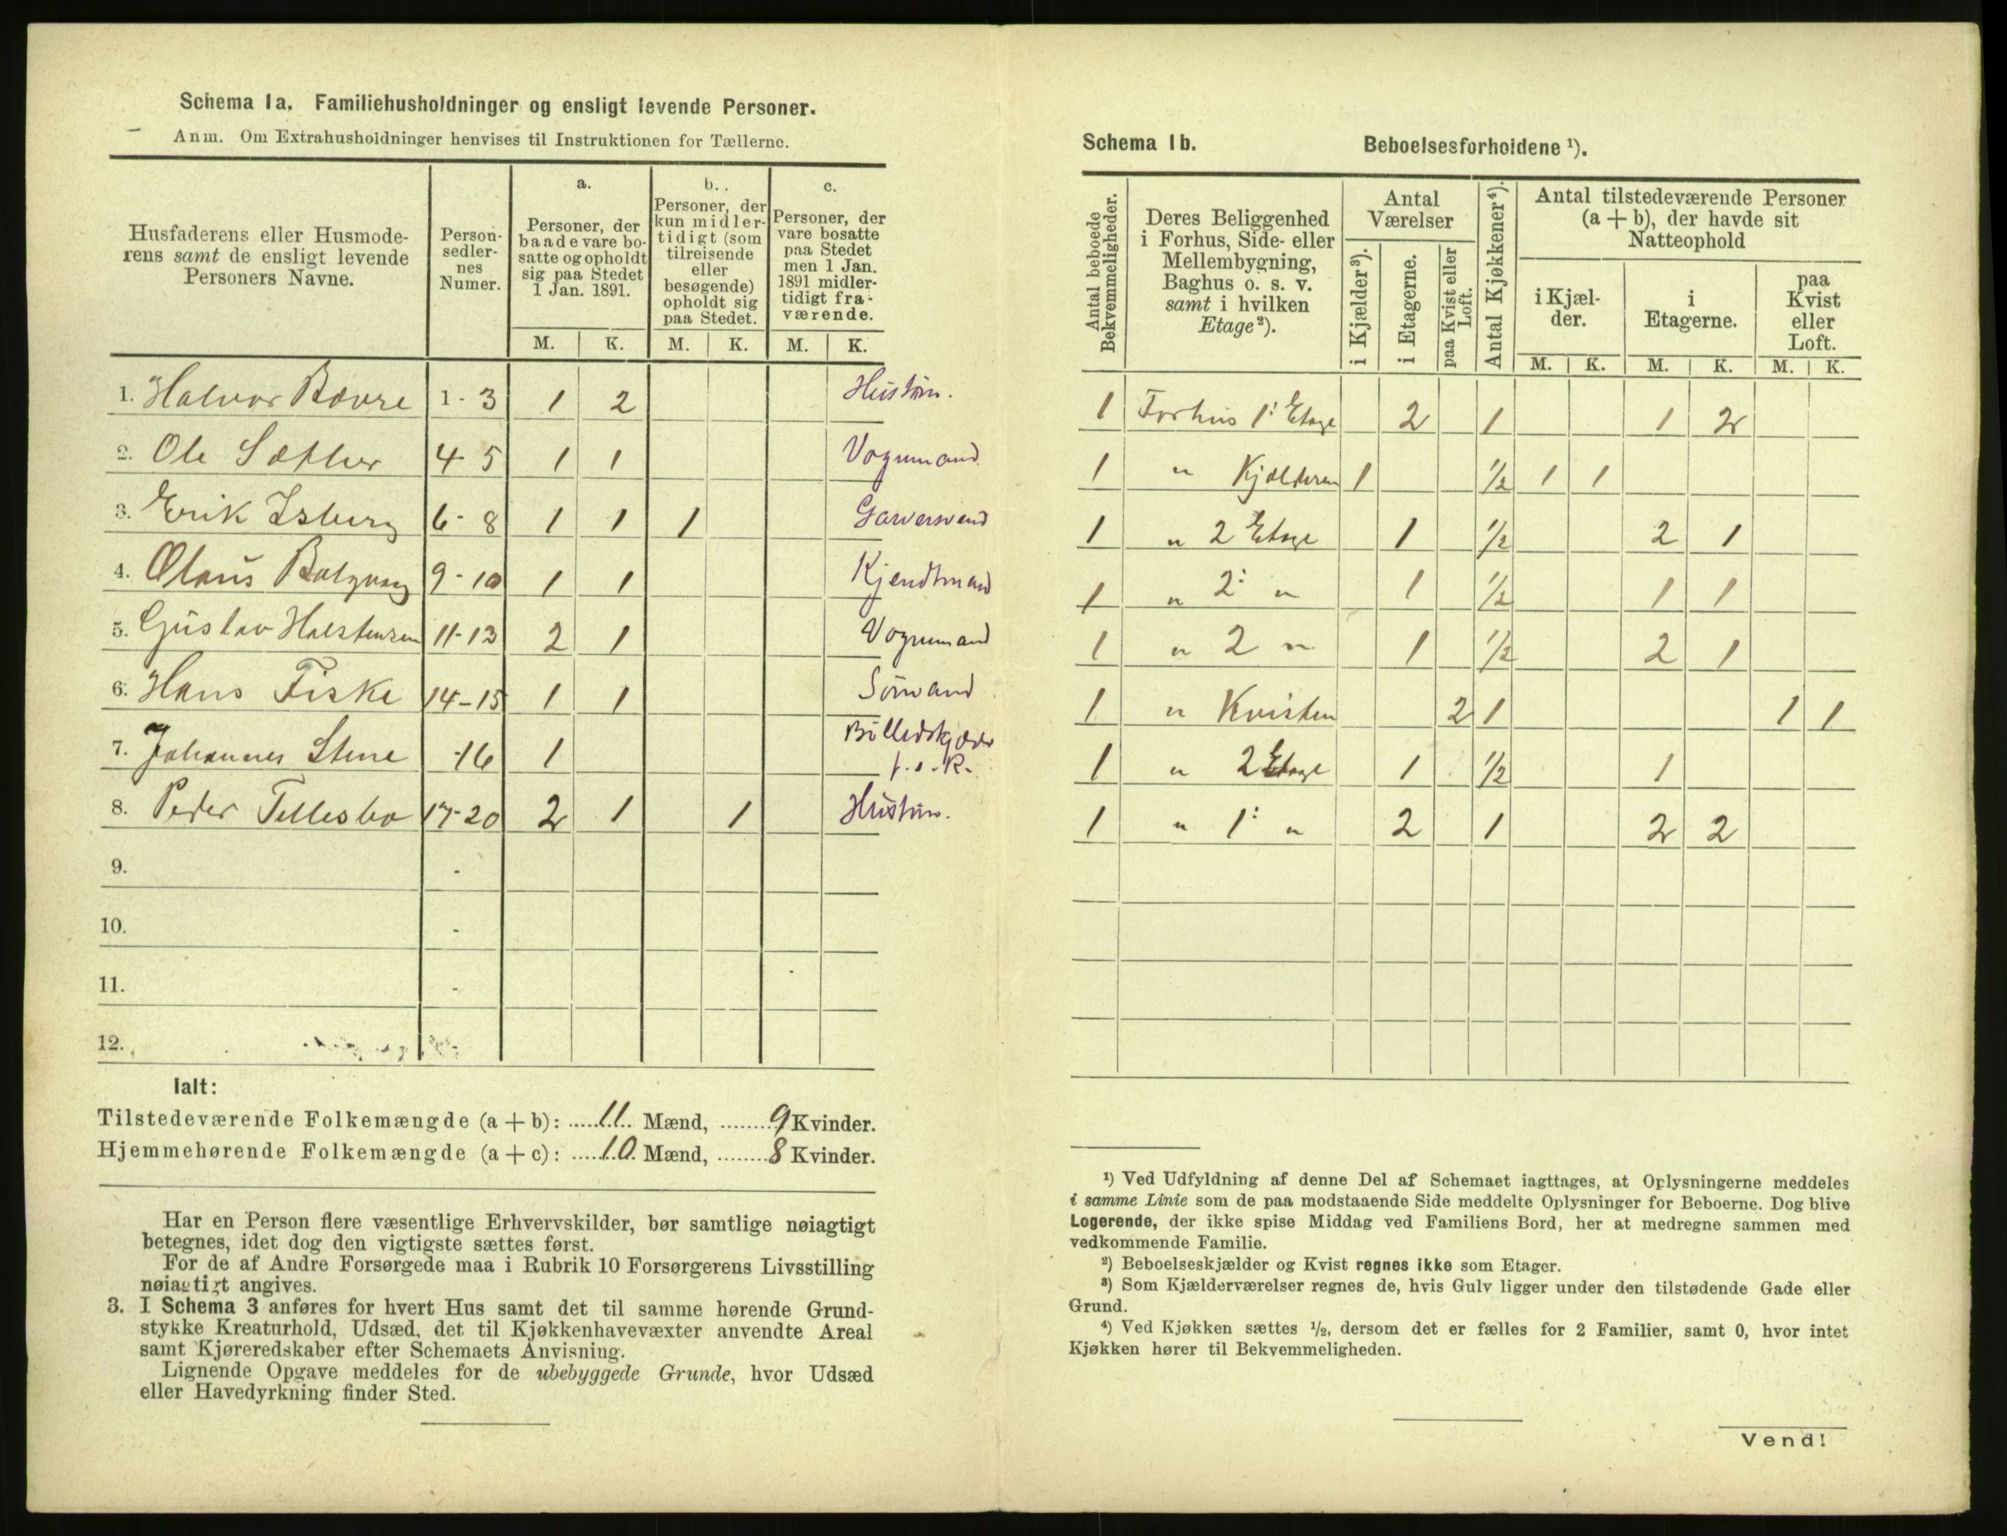 Schema 1a. Familiehusholdninger og ensligt levende Personer.
Anm. Om Extrahusholdninger henvises til Instruktionen for Tællerne.
Husfaderens eller Husmode-
rens samt de ensligt levende
Personers Navne.
Person-
sedler-
nes
Numer.
a.
Personer, der
baade vare bo-
satte og opholdt
sig paa Stedet
1 Jan. 1891.
b.
Personer, der
kun midler-
tidigt (som
tilreisende
eller
besøgende)
opholdt sig
paa Stedet.
c.
Personer, der
vare bosatte
paa Stedet
men 1 Jan.
1891 midler-
tidigt fra-
værende.
M. K. M. K. M. K.
1. Halvor Bævre 1 - 3 1 2 Huseier.
2. Ole Sæther 4 - 5 1 1 Vognmand
3. Erik Isberg 6 - 8 1 1 1 Garversvend
4. Olaus 9 - 10 1 1 Kjendtmand
5. Gustav Halstensen 11 - 13 2 1 Vognmand
6. Hans Fiske 14 - 15 1 1 Sömand
7. Johannes Stene - 16 1 Billedskjærer
f. e. R.
8. Peder Tellesbo 17 - 20 2 1 1 Huseier.
9. -
10. -
11. -
12.
Ialt:
Tilstedeværende Folkemængde (a + b): 11 Mænd, 9 Kvinder.
Hjemmehørende Folkemængde (a + c): 10 Mænd, 8 Kvinder.
Har en Person flere væsentlige Erhvervskilder, bør samtlige nøiagtigt
betegnes, idet dog den vigtigste sættes først.
For de af Andre Forsørgede maa i Rubrik 10 Forsørgerens Livsstilling
nøiagtigt angives.
3. I Schema 3 anføres for hvert Hus samt det til samme hørende Grund-
stykke Kreaturhold, Udsæd, det til Kjøkkenhavevæxter anvendte Areal
samt Kjøreredskaber efter Schemaets Anvisning.
Lignende Opgave meddeles for de ubebyggede Grunde, hvor Udsæd
eller Havedyrkning finder Sted.
Schema 1b. Beboelsesforholdene ¹).
Antal beboede
Bekvemmeligheder.
Deres Beliggenhed
i Forhus, Side- eller
Mellembygning,
Baghus o. s. v.
samt i hvilken
Etage ²).
Antal
Værelser
i Kjælder ³).
i Etagerne.
paa Kvist eller
Loft.
Antal Kjøkkener ⁴).
Antal tilstedeværende Personer
(a + b), der havde sit
Natteophold
i Kjæl-
der.
i
Etagerne.
paa
Kvist
eller
Loft.
M. K. M. K. M. K.
1 Forhus 1: Etage 2 1 1 2
1 " Kjælderen 1 1/2 1 1
1 " 2 Etage 1 1/2 2 1
1 " 2: " 1 1/2 1 1
1 " 2 " 1 1/2 2 1
1 " Kvisten 2 1 1 1
1 " 2 Etage 1 1/2 1
1 " 1: " 2 1 2 2
¹) Ved Udfyldning af denne Del af Schemaet iagttages, at Oplysningerne meddeles
i samme Linie som de paa modstaaende Side meddelte Oplysninger for Beboerne. Dog blive
Logerende, der ikke spise Middag ved Familiens Bord, her at medregne sammen med
vedkommende Familie.
²) Beboelseskjælder og Kvist regnes ikke som Etager.
³) Som Kjælderværelser regnes de, hvis Gulv ligger under den tilstødende Gade eller
Grund.
⁴) Ved Kjøkken sættes 1/2, dersom det er fælles for 2 Familier, samt 0, hvor intet
Kjøkken hører til Bekvemmeligheden.
Vend!